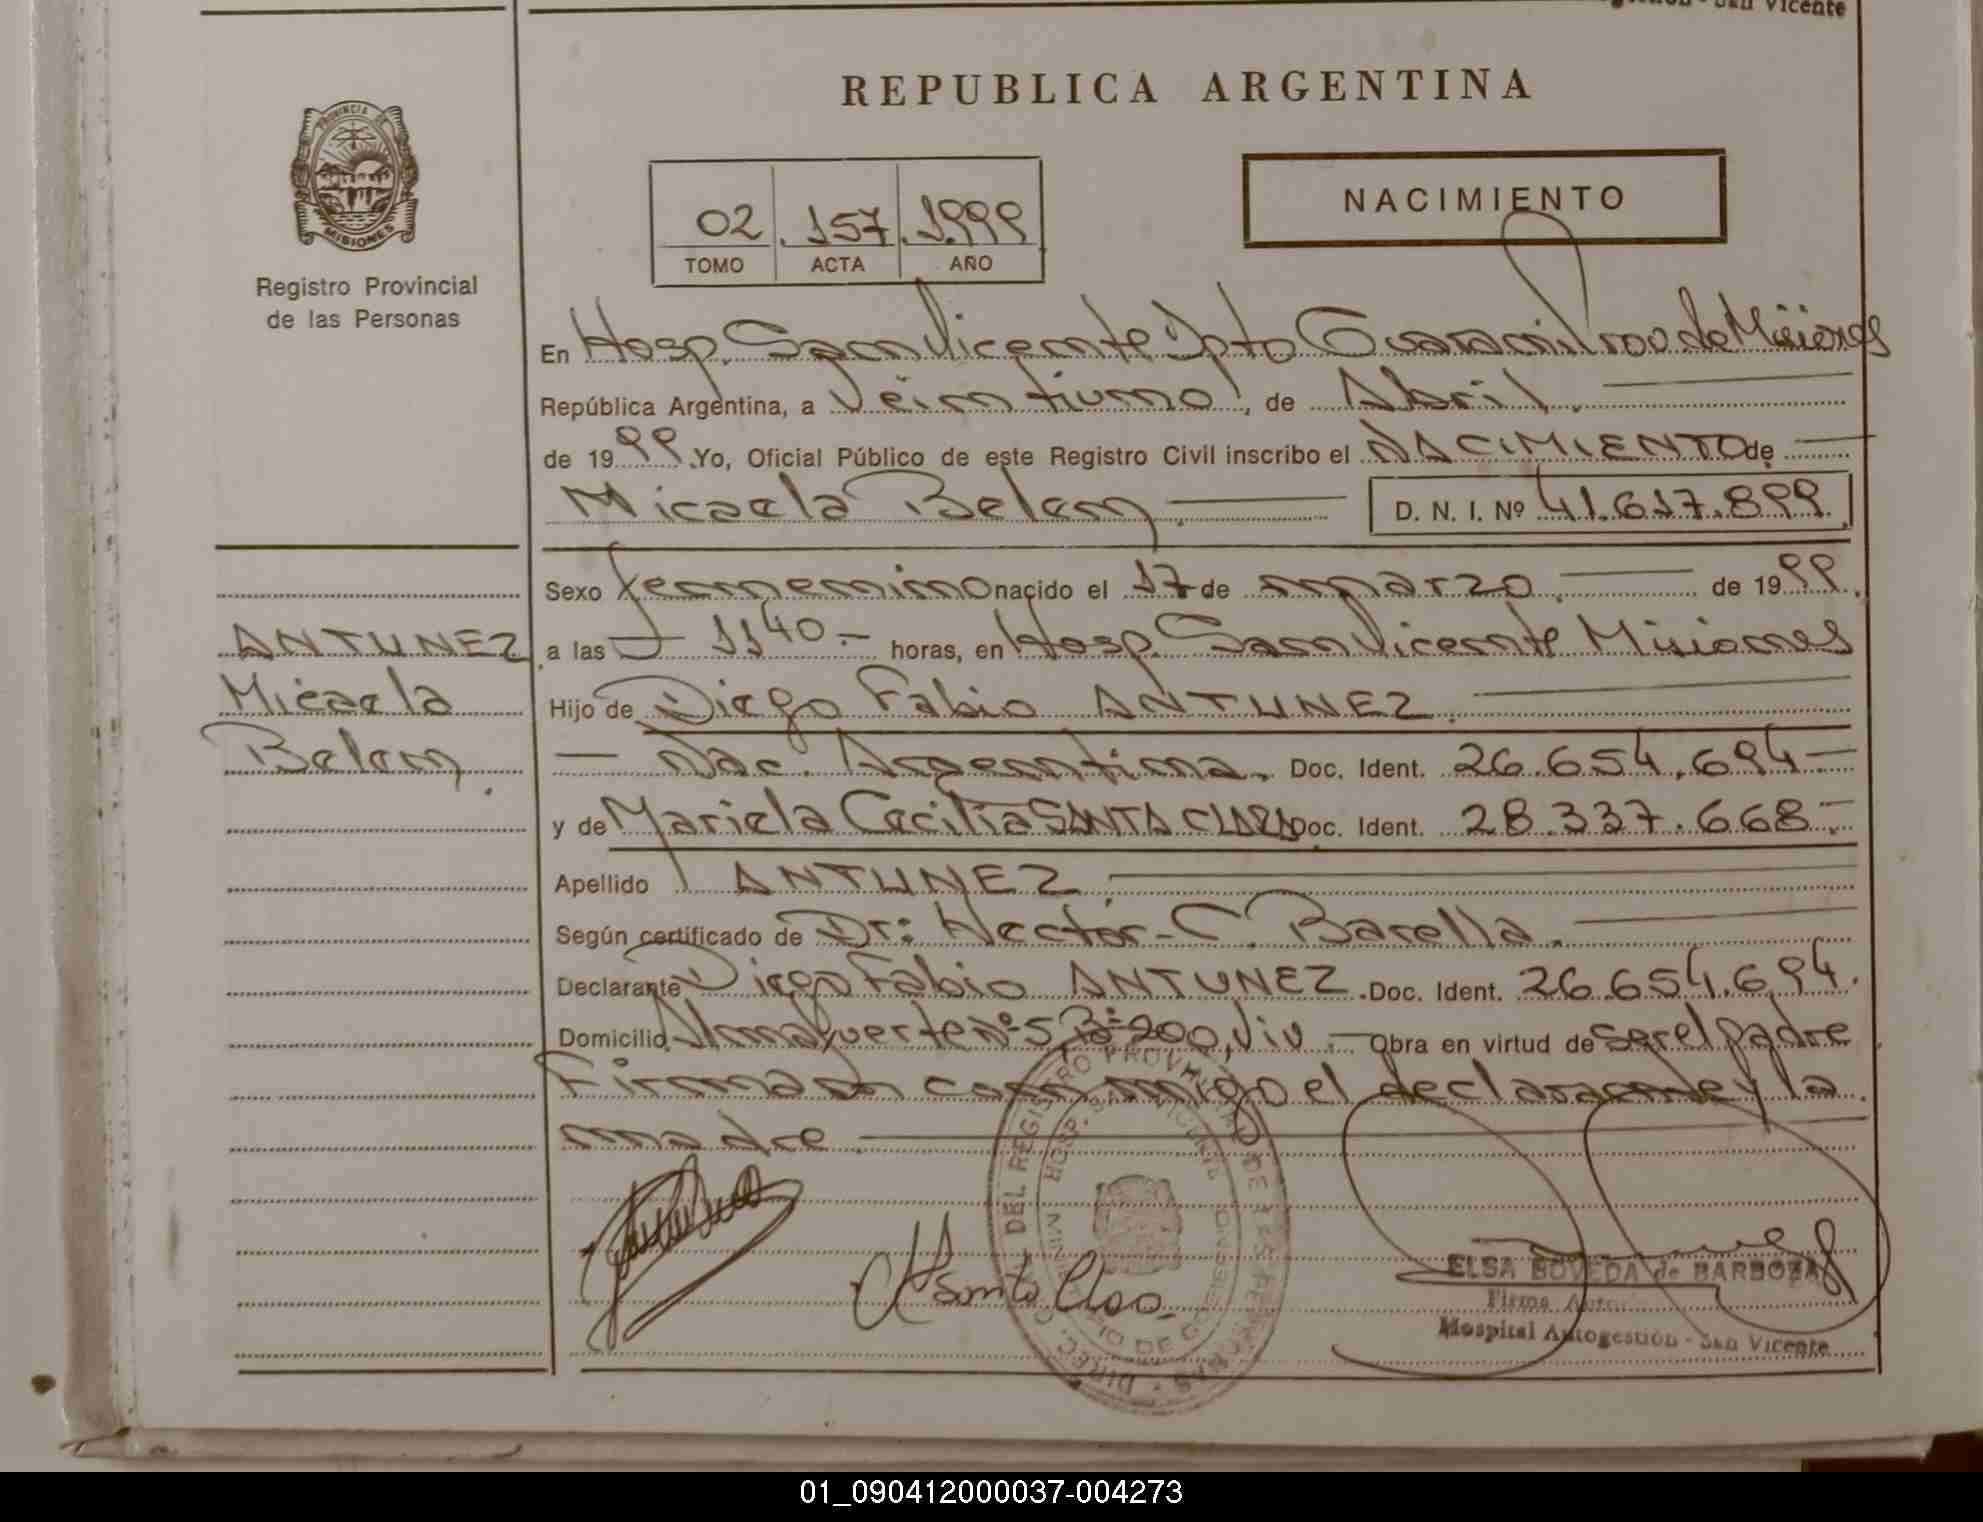 San Vicente
REPUBLICA ARGENTINA
PROVINCIA DE
MISIONES
Registro Provincial
de las Personas
02 157 1999
TOMO ACTA AÑO
NACIMIENTO
En Hosp. San Vicente Dpto Guarani, de Misiones
República Argentina, a Veintiuno, de Abril.
de 1999. Yo, Oficial Público de este Registro Civil inscribo el NACIMIENTO de
Micaela Belen D. N. I. Nº 41.617.899.
Sexo femenino nacido el 17 de marzo de 1999.
a las 11 40 horas, en Hosp. San Vicente Misiones
Hijo de Diego Fabio ANTUNEZ
Nac. Argentina. Doc. Ident. 26.654.694
y de Mariela Cecilia SANTA CLARA Doc. Ident. 28.337.668
Apellido ANTUNEZ
Según certificado de Dr: Hector C. Barella.
Declarante Diego Fabio ANTUNEZ. Doc. Ident. 26.654.694.
Domicilio Almafuerte Nº 5, Bº 200, Viv. Obra en virtud de ser el padre
Firman conmigo el declarante y la
madre
ANTUNEZ
Micaela
Belen
DIREC. GRAL. DEL REGISTRO PROVINCIAL DE LAS PERSONAS
HOSP. SAN VICENTE
MINISTERIO DE GOBIERNO
ELSA BOVEDA de BARBOZA
Firma
Hospital Autogestión - San Vicente
01_090412000037-004273